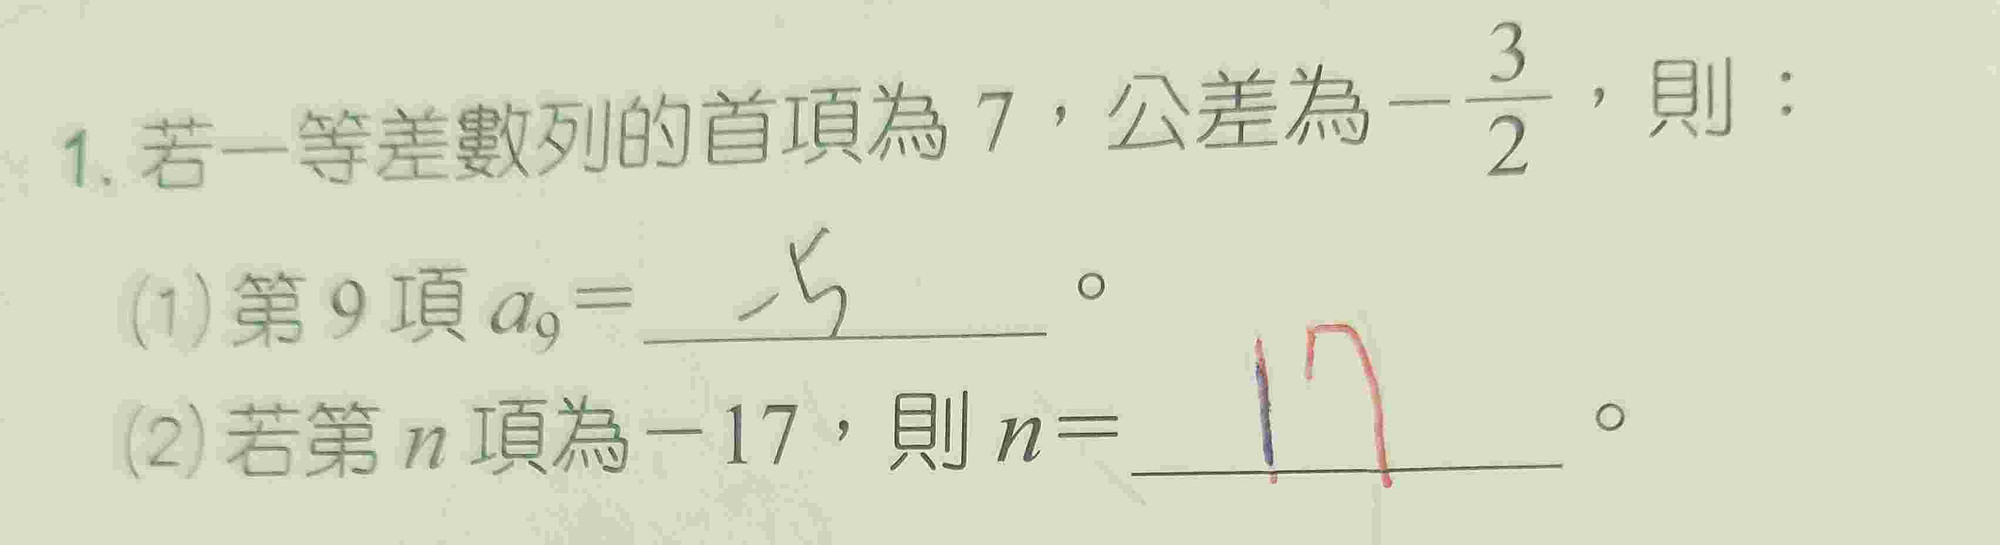 1. 若一等差數列的首項為 7，公差為 −3/2，則：
(1) 第 9 項 a₉＝ -5 。
(2) 若第 n 項為−17，則 n＝ 17 。